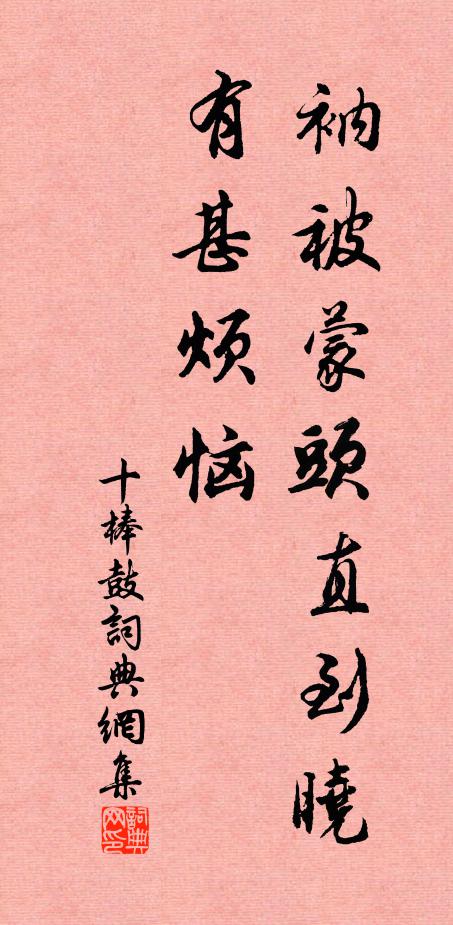 衲被蒙頭直到曉
有甚煩恼
十棒鼓詞典網集
詞典
网印